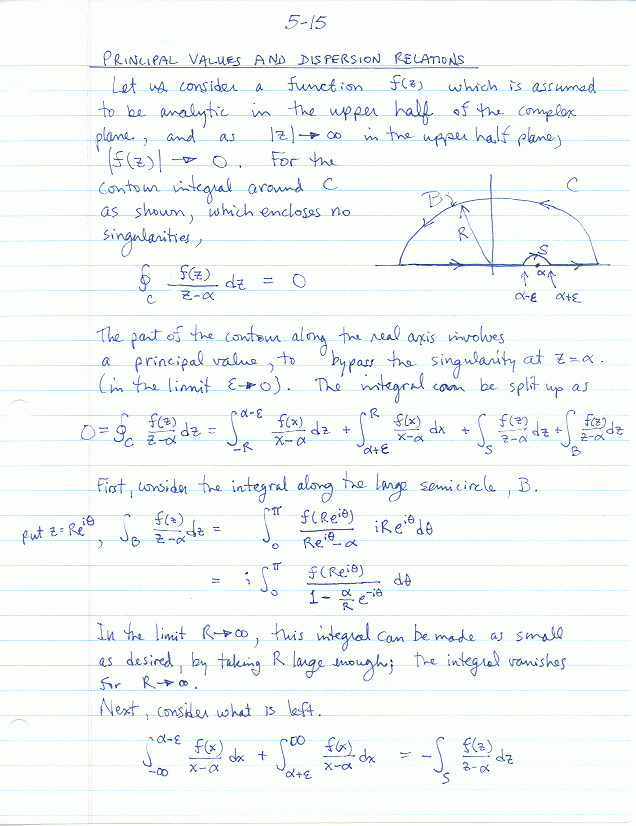 5-15
PRINCIPAL VALUES AND DISPERSION RELATIONS
Let us consider a function f(z) which is assumed
to be analytic in the upper half of the complex
plane, and as |z| → ∞ in the upper half plane,
|f(z)| → 0. For the
contour integral around C
as shown, which encloses no
singularities,
B C
R S
α
α-ε α+ε
∮_C f(z)/(z-α) dz = 0
The part of the contour along the real axis involves
a principal value, to bypass the singularity at z=α.
(in the limit ε→0). The integral can be split up as
0 = ∮_C f(z)/(z-α) dz = ∫_{-R}^{α-ε} f(x)/(x-α) dz + ∫_{α+ε}^{R} f(x)/(x-α) dx + ∫_S f(z)/(z-α) dz + ∫_B f(z)/(z-α) dz
First, consider the integral along the large semicircle, B.
put z=Re^{iθ}, ∫_B f(z)/(z-α) dz = ∫_0^π f(Re^{iθ})/(Re^{iθ}-α) iRe^{iθ} dθ
= i ∫_0^π f(Re^{iθ})/(1 - α/R e^{-iθ}) dθ
In the limit R→∞, this integral can be made as small
as desired, by taking R large enough; the integral vanishes
for R→∞.
Next, consider what is left.
∫_{-∞}^{α-ε} f(x)/(x-α) dx + ∫_{α+ε}^{∞} f(x)/(x-α) dx = -∫_S f(z)/(z-α) dz